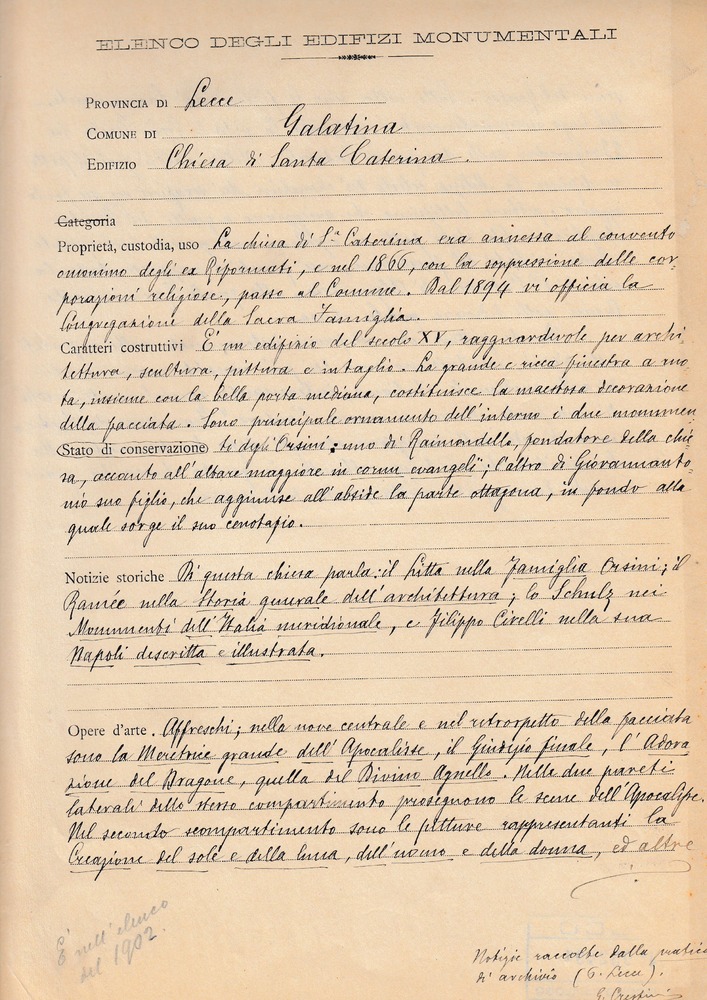 ELENCO DEGLI EDIFIZI MONUMENTALI
PROVINCIA DI Lecce
COMUNE DI Galatina
EDIFIZIO Chiesa di Santa Caterina.
Categoria
Proprietà, custodia, uso La chiesa di S.ª Caterina era annessa al convento
omonimo degli ex Riformati, e nel 1866, con la soppressione delle cor-
porazioni religiose, passò al Comune. Dal 1894 vi officia la
Congregazione della Sacra Famiglia.
Caratteri costruttivi È un edifizio del secolo XV, ragguardevole per archi
tettura, scultura, pittura e intaglio. La grande e ricca finestra a ruo
ta, insieme con la bella porta mediana, costituisce la maestosa decorazione
della facciata. Sono principale ornamento dell'interno i due monumen
Stato di conservazione ti degli Orsini: uno di Raimondello, fondatore della chie
sa, accanto all'altare maggiore in cornu evangeli; l'altro di Giovannanto
nio suo figlio, che aggiunse all'abside la parte ottagona, in fondo alla
quale sorge il suo cenotafio.
Notizie storiche Di questa chiesa parla: il Litta nella Famiglia Orsini; il
Ramée nella Storia generale dell'architettura; lo Schulz nei
Monumenti dell'Italia meridionale, e Filippo Cirelli nella sua
Napoli descritta e illustrata.
Opere d'arte. Affreschi; nella nave centrale e nel retrospetto della facciata
sono la Meretrice grande dell'Apocalisse, il Giudizio finale, l'Adora
zione del Dragone, quella del Divino Agnello. Nelle due pareti
laterali dello stesso compartimento proseguono le scene dell'Apocalisse.
Nel secondo scompartimento sono le pitture rappresentanti la
Creazione del sole e della luna, dell'uomo e della donna, ed altre
È nell'elenco
del 1902.
Notizie raccolte dalla pratica
di archivio (G. Lecce).